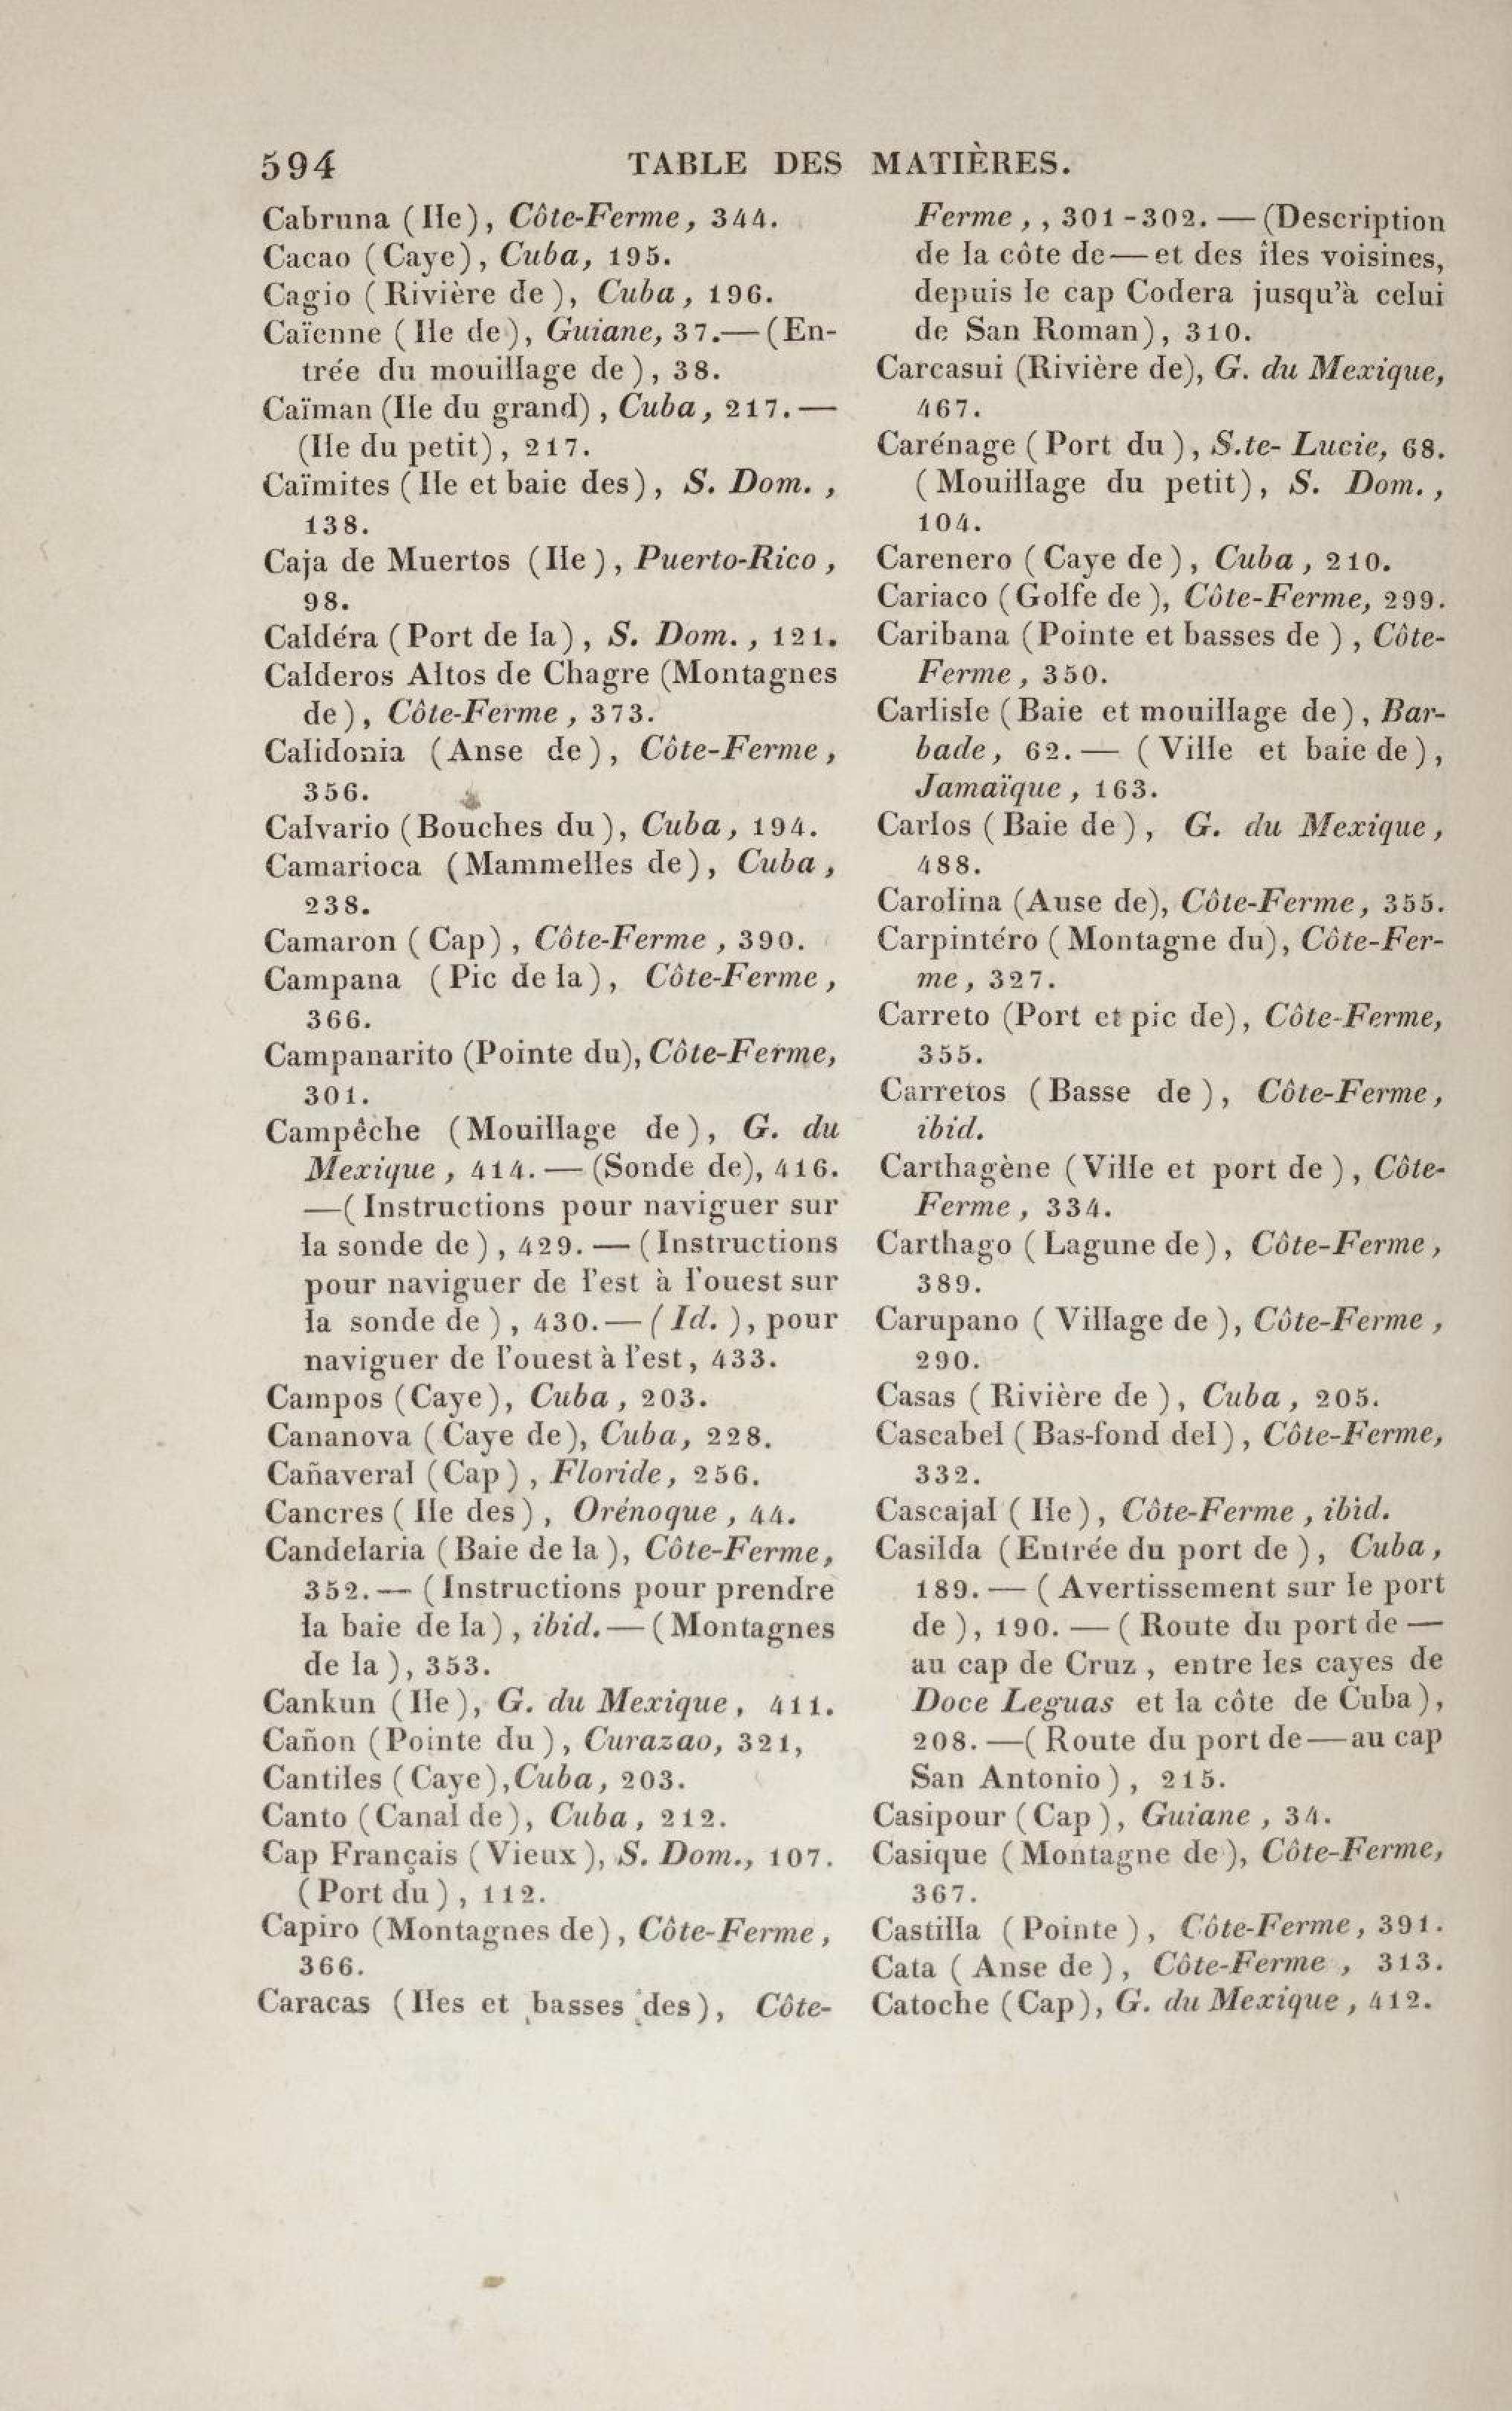 594 TABLE DES MATIÈRES.
Cabruna (Ile), Côte-Ferme, 344.
Cacao (Caye), Cuba, 195.
Cagio (Rivière de), Cuba, 196.
Caïenne (Ile de), Guiane, 37.—(En-
trée du mouillage de), 38.
Caïman (Ile du grand), Cuba, 217.—
(Ile du petit), 217.
Caïmites (Ile et baie des), S. Dom.,
138.
Caja de Muertos (Ile), Puerto-Rico,
98.
Caldéra (Port de la), S. Dom., 121.
Calderos Altos de Chagre (Montagnes
de), Côte-Ferme, 373.
Calidonia (Anse de), Côte-Ferme,
356.
Calvario (Bouches du), Cuba, 194.
Camarioca (Mammelles de), Cuba,
238.
Camaron (Cap), Côte-Ferme, 390.
Campana (Pic de la), Côte-Ferme,
366.
Campanarito (Pointe du), Côte-Ferme,
301.
Campêche (Mouillage de), G. du
Mexique, 414.—(Sonde de), 416.
—(Instructions pour naviguer sur
la sonde de), 429.—(Instructions
pour naviguer de l'est à l'ouest sur
la sonde de), 430.—(Id.), pour
naviguer de l'ouest à l'est, 433.
Campos (Caye), Cuba, 203.
Cananova (Caye de), Cuba, 228.
Cañaveral (Cap), Floride, 256.
Cancres (Ile des), Orénoque, 44.
Candelaria (Baie de la), Côte-Ferme,
352.—(Instructions pour prendre
la baie de la), ibid.—(Montagnes
de la), 353.
Cankun (Ile), G. du Mexique, 411.
Cañon (Pointe du), Curazao, 321,
Cantiles (Caye), Cuba, 203.
Canto (Canal de), Cuba, 212.
Cap Français (Vieux), S. Dom., 107.
(Port du), 112.
Capiro (Montagnes de), Côte-Ferme,
366.
Caracas (Iles et basses des), Côte-
Ferme,, 301-302.—(Description
de la côte de—et des îles voisines,
depuis le cap Codera jusqu'à celui
de San Roman), 310.
Carcasui (Rivière de), G. du Mexique,
467.
Carénage (Port du), S.te- Lucie, 68.
(Mouillage du petit), S. Dom.,
104.
Carenero (Caye de), Cuba, 210.
Cariaco (Golfe de), Côte-Ferme, 299.
Caribana (Pointe et basses de), Côte-
Ferme, 350.
Carlisle (Baie et mouillage de), Bar-
bade, 62.—(Ville et baie de),
Jamaïque, 163.
Carlos (Baie de), G. du Mexique,
488.
Carolina (Ause de), Côte-Ferme, 355.
Carpintéro (Montagne du), Côte-Fer-
me, 327.
Carreto (Port et pic de), Côte-Ferme,
355.
Carretos (Basse de), Côte-Ferme,
ibid.
Carthagène (Ville et port de), Côte-
Ferme, 334.
Carthago (Lagune de), Côte-Ferme,
389.
Carupano (Village de), Côte-Ferme,
290.
Casas (Rivière de), Cuba, 205.
Cascabel (Bas-fond del), Côte-Ferme,
332.
Cascajal (Ile), Côte-Ferme, ibid.
Casilda (Entrée du port de), Cuba,
189.—(Avertissement sur le port
de), 190.—(Route du port de—
au cap de Cruz, entre les cayes de
Doce Leguas et la côte de Cuba),
208.—(Route du port de—au cap
San Antonio), 215.
Casipour (Cap), Guiane, 34.
Casique (Montagne de), Côte-Ferme,
367.
Castilla (Pointe), Côte-Ferme, 391.
Cata (Anse de), Côte-Ferme, 313.
Catoche (Cap), G. du Mexique, 412.